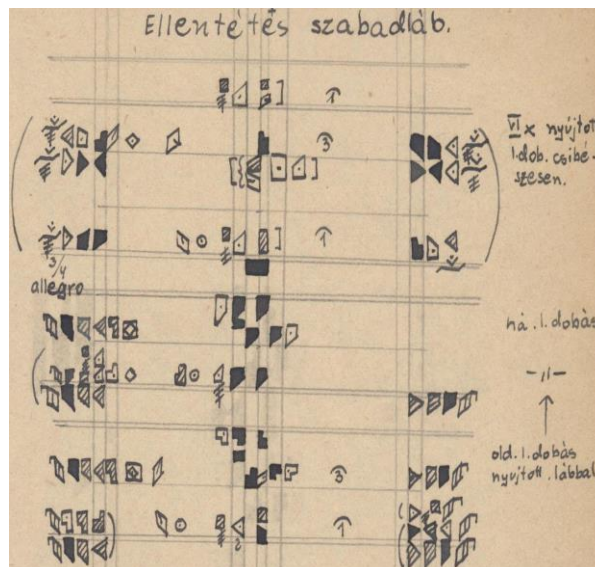 Ellentétes szabadláb.
1
3
VI x nyújtott
l.dob. csibé-
szesen.
1
3/4
allegro
há. l. dobás
-"-
old. l. dobás
nyújtott. lábbal
3
1